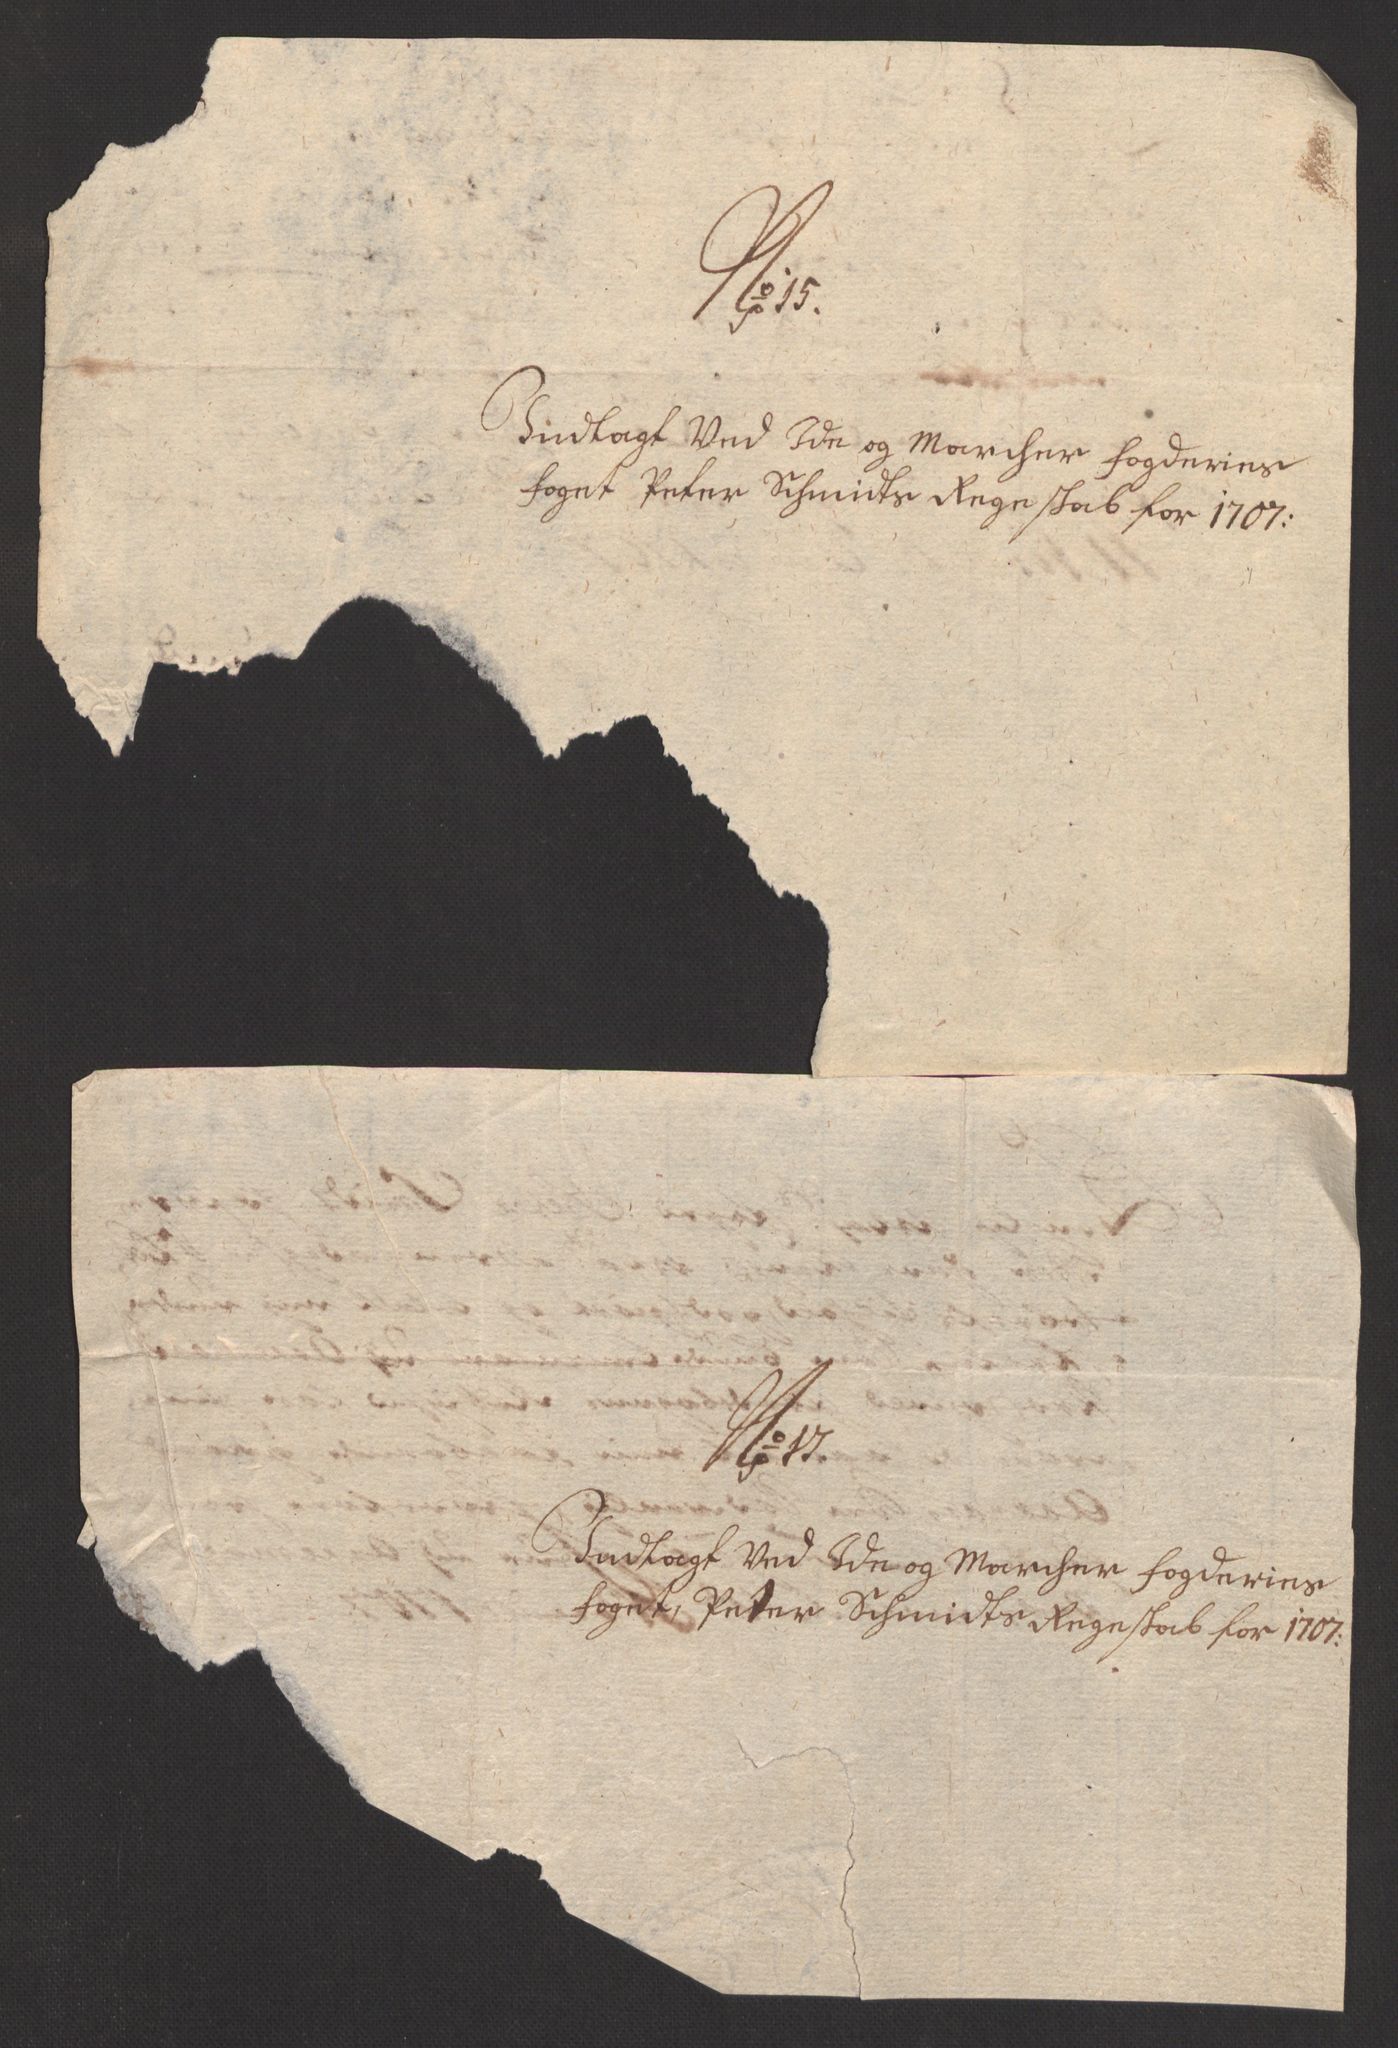 No 15.
Indlagt Ved Ide og Marcher fogderies
foget Peter Schmidts Regeskab for 1707:
No 17.
Indlagt Ved Ide og Marcher fogderies
foget, Peter Schmidts Regeskab for 1707: